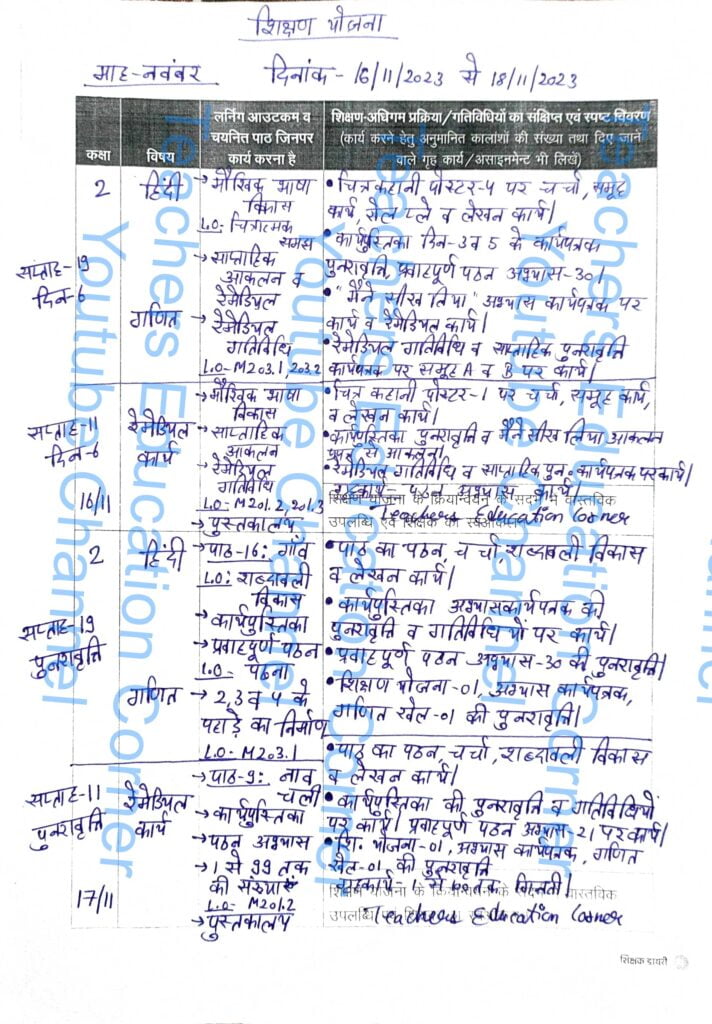 शिक्षण योजना
माह-नवंबर दिनांक-16/11/2023 से 18/11/2023
कक्षा
विषय
लर्निंग आउटकम व
चयनित पाठ जिनपर
कार्य करना है
शिक्षण-अधिगम प्रक्रिया/गतिविधियों का संक्षिप्त एवं स्पष्ट विवरण
(कार्य करने हेतु अनुमानित कालांशों की संख्या तथा दिए जाने
वाले गृह कार्य/असाइनमेंट भी लिखें)
सप्ताह-19
दिन-6
2
हिंदी
→मौखिक भाषा
विकास
L.O:- चित्रात्मक
समझ
→साप्ताहिक
आकलन व
रेमेडियल
• चित्र कहानी पोस्टर-4 पर चर्चा, समूह
कार्य, रोल प्ले व लेखन कार्य।
• कार्यपुस्तिका दिन-3 व 5 के कार्यपत्रक
पुनरावृत्ति, प्रवाहपूर्ण पठन अभ्यास-30।
• "मैंने सीख लिया" अभ्यास कार्यपत्रक पर
कार्य व रेमेडियल कार्य।
गणित
→रेमेडियल
गतिविधि
L.O- M203.1, 203.2
• रेमेडियल गतिविधि व साप्ताहिक पुनरावृत्ति
कार्यपत्रक पर समूह A व B पर कार्य।
सप्ताह-11
दिन-6
16/11
रेमेडियल
कार्य
→मौखिक भाषा
विकास
→साप्ताहिक
आकलन
→रेमेडियल
गतिविधि
L.O- M201.2, 201.3
→पुस्तकालय
• चित्र कहानी पोस्टर-1 पर चर्चा, समूह कार्य,
व लेखन कार्य।
• कार्यपुस्तिका पुनरावृत्ति व मैंने सीख लिया आकलन
से आकलन।
• रेमेडियल गतिविधि व साप्ताहिक पुन. कार्यपत्रक पर कार्य।
गृहकार्य- पठन अभ्यास कार्य।
शिक्षण योजना के क्रियान्वयन के संदर्भ में वास्तविक
उपलब्धि एवं शिक्षक का स्वआकलन
Teachers Education Corner
सप्ताह-19
पुनरावृत्ति
2
हिंदी
→पाठ-16: गाँव
L.O: शब्दावली
विकास
→कार्यपुस्तिका
→प्रवाहपूर्ण पठन
L.O- पठना
• पाठ का पठन, चर्चा, शब्दावली विकास
व लेखन कार्य।
• कार्यपुस्तिका अभ्यासकार्यपत्रक की
पुनरावृत्ति व गतिविधियों पर कार्य।
• प्रवाहपूर्ण पठन अभ्यास-30 की पुनरावृत्ति।
गणित
→ 2,3 व 4 के
पहाड़े का निर्माण
L.O- M203.1
• शिक्षण योजना-01, अभ्यास कार्यपत्रक,
गणित खेल-01 की पुनरावृत्ति।
सप्ताह-11
पुनरावृत्ति
17/11
रेमेडियल
कार्य
→पाठ-9: नाव
चली
→कार्यपुस्तिका
→पठन अभ्यास
→1 से 99 तक
की संख्याएं
L.O- M201.2
→पुस्तकालय
• पाठ का पठन, चर्चा, शब्दावली विकास
व लेखन कार्य।
• कार्यपुस्तिका की पुनरावृत्ति व गतिविधियों
पर कार्य। प्रवाहपूर्ण पठन अभ्यास-21 पर कार्य।
• शि. योजना-01, अभ्यास कार्यपत्रक, गणित
खेल-01 की पुनरावृत्ति
गृहकार्य- 1 से तक गिनती।
शिक्षण योजना के क्रियान्वयन के संदर्भ में वास्तविक
उपलब्धि
Teachers Education Corner
शिक्षक डायरी
Teachers Education Corner
Youtube Channel
Teachers Education Corner
Youtube Channel